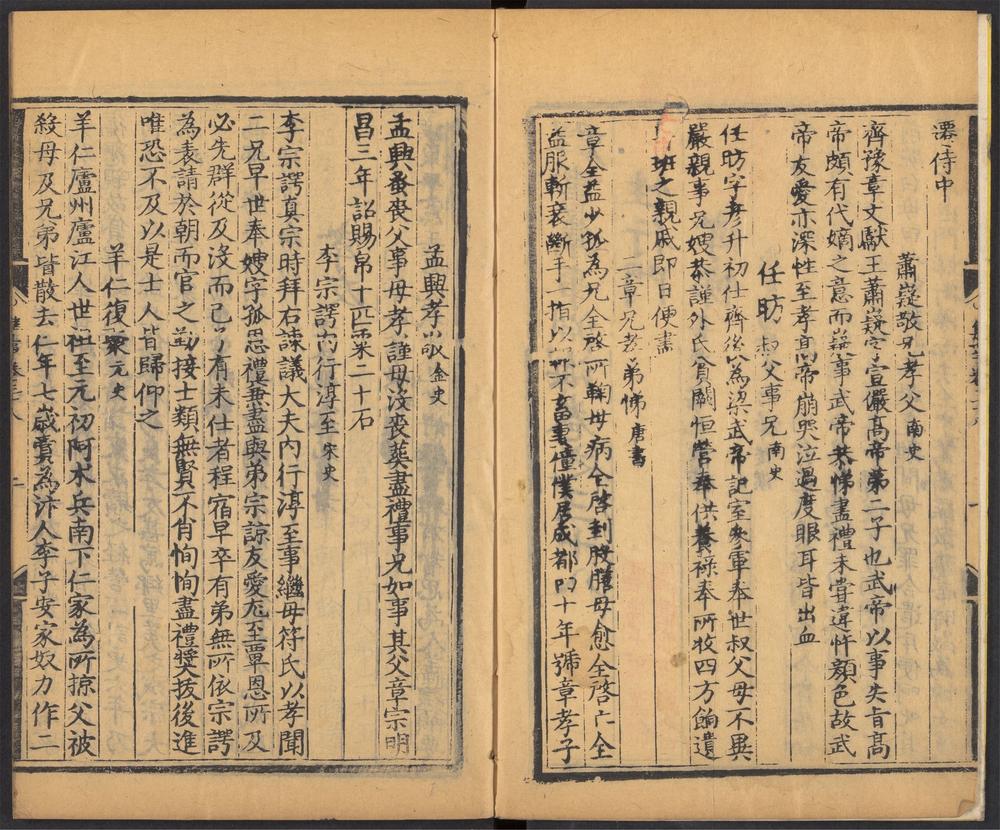 遷侍中
蕭嶷敬兄孝父南史
齊豫章文獻王蕭嶷字宣儼高帝第二子也武帝以事失旨高
帝頗有代嫡之意而嶷事武帝恭悌盡禮未嘗違忤顏色故武
帝友愛亦深性至孝高帝崩哭泣過度眼耳皆出血
任昉叔父事兄南史
任昉字彥升初仕齊後為梁武帝記室參軍奉世叔父母不異
嚴親事兄嫂恭謹外氏貧闕恒營奉供養祿奉所收四方餉遺
班之親戚即日便盡
二章兄孝弟悌唐書
章全益少孤為兄全啓所鞠母病全啓刲股膳母愈全啓亡全
益服斬衰斷手一指以不畜妻僮僕居成都四十年號章孝子
孟興孝敬金史
孟興蚤喪父事母孝謹母沒喪葬盡禮事兄如事其父章宗明
昌三年詔賜帛十匹粟二十石
李宗諤內行淳至宋史
李宗諤真宗時拜右諫議大夫內行淳至事繼母符氏以孝聞
二兄早世奉嫂字孤恩禮兼盡與弟宗諒友愛尤至覃恩所及
必先群從及沒而己子有未仕者程宿早卒有弟無所依宗諤
為表請於朝而官之勤接士類無賢不肖恂恂盡禮奬拔後進
唯恐不及以是士人皆歸仰之
羊仁復聚元史
羊仁廬州廬江人世祖至元初阿朮兵南下仁家為所掠父被
殺母及兄弟皆散去仁年七歲賣為汴人李子安家奴力作二